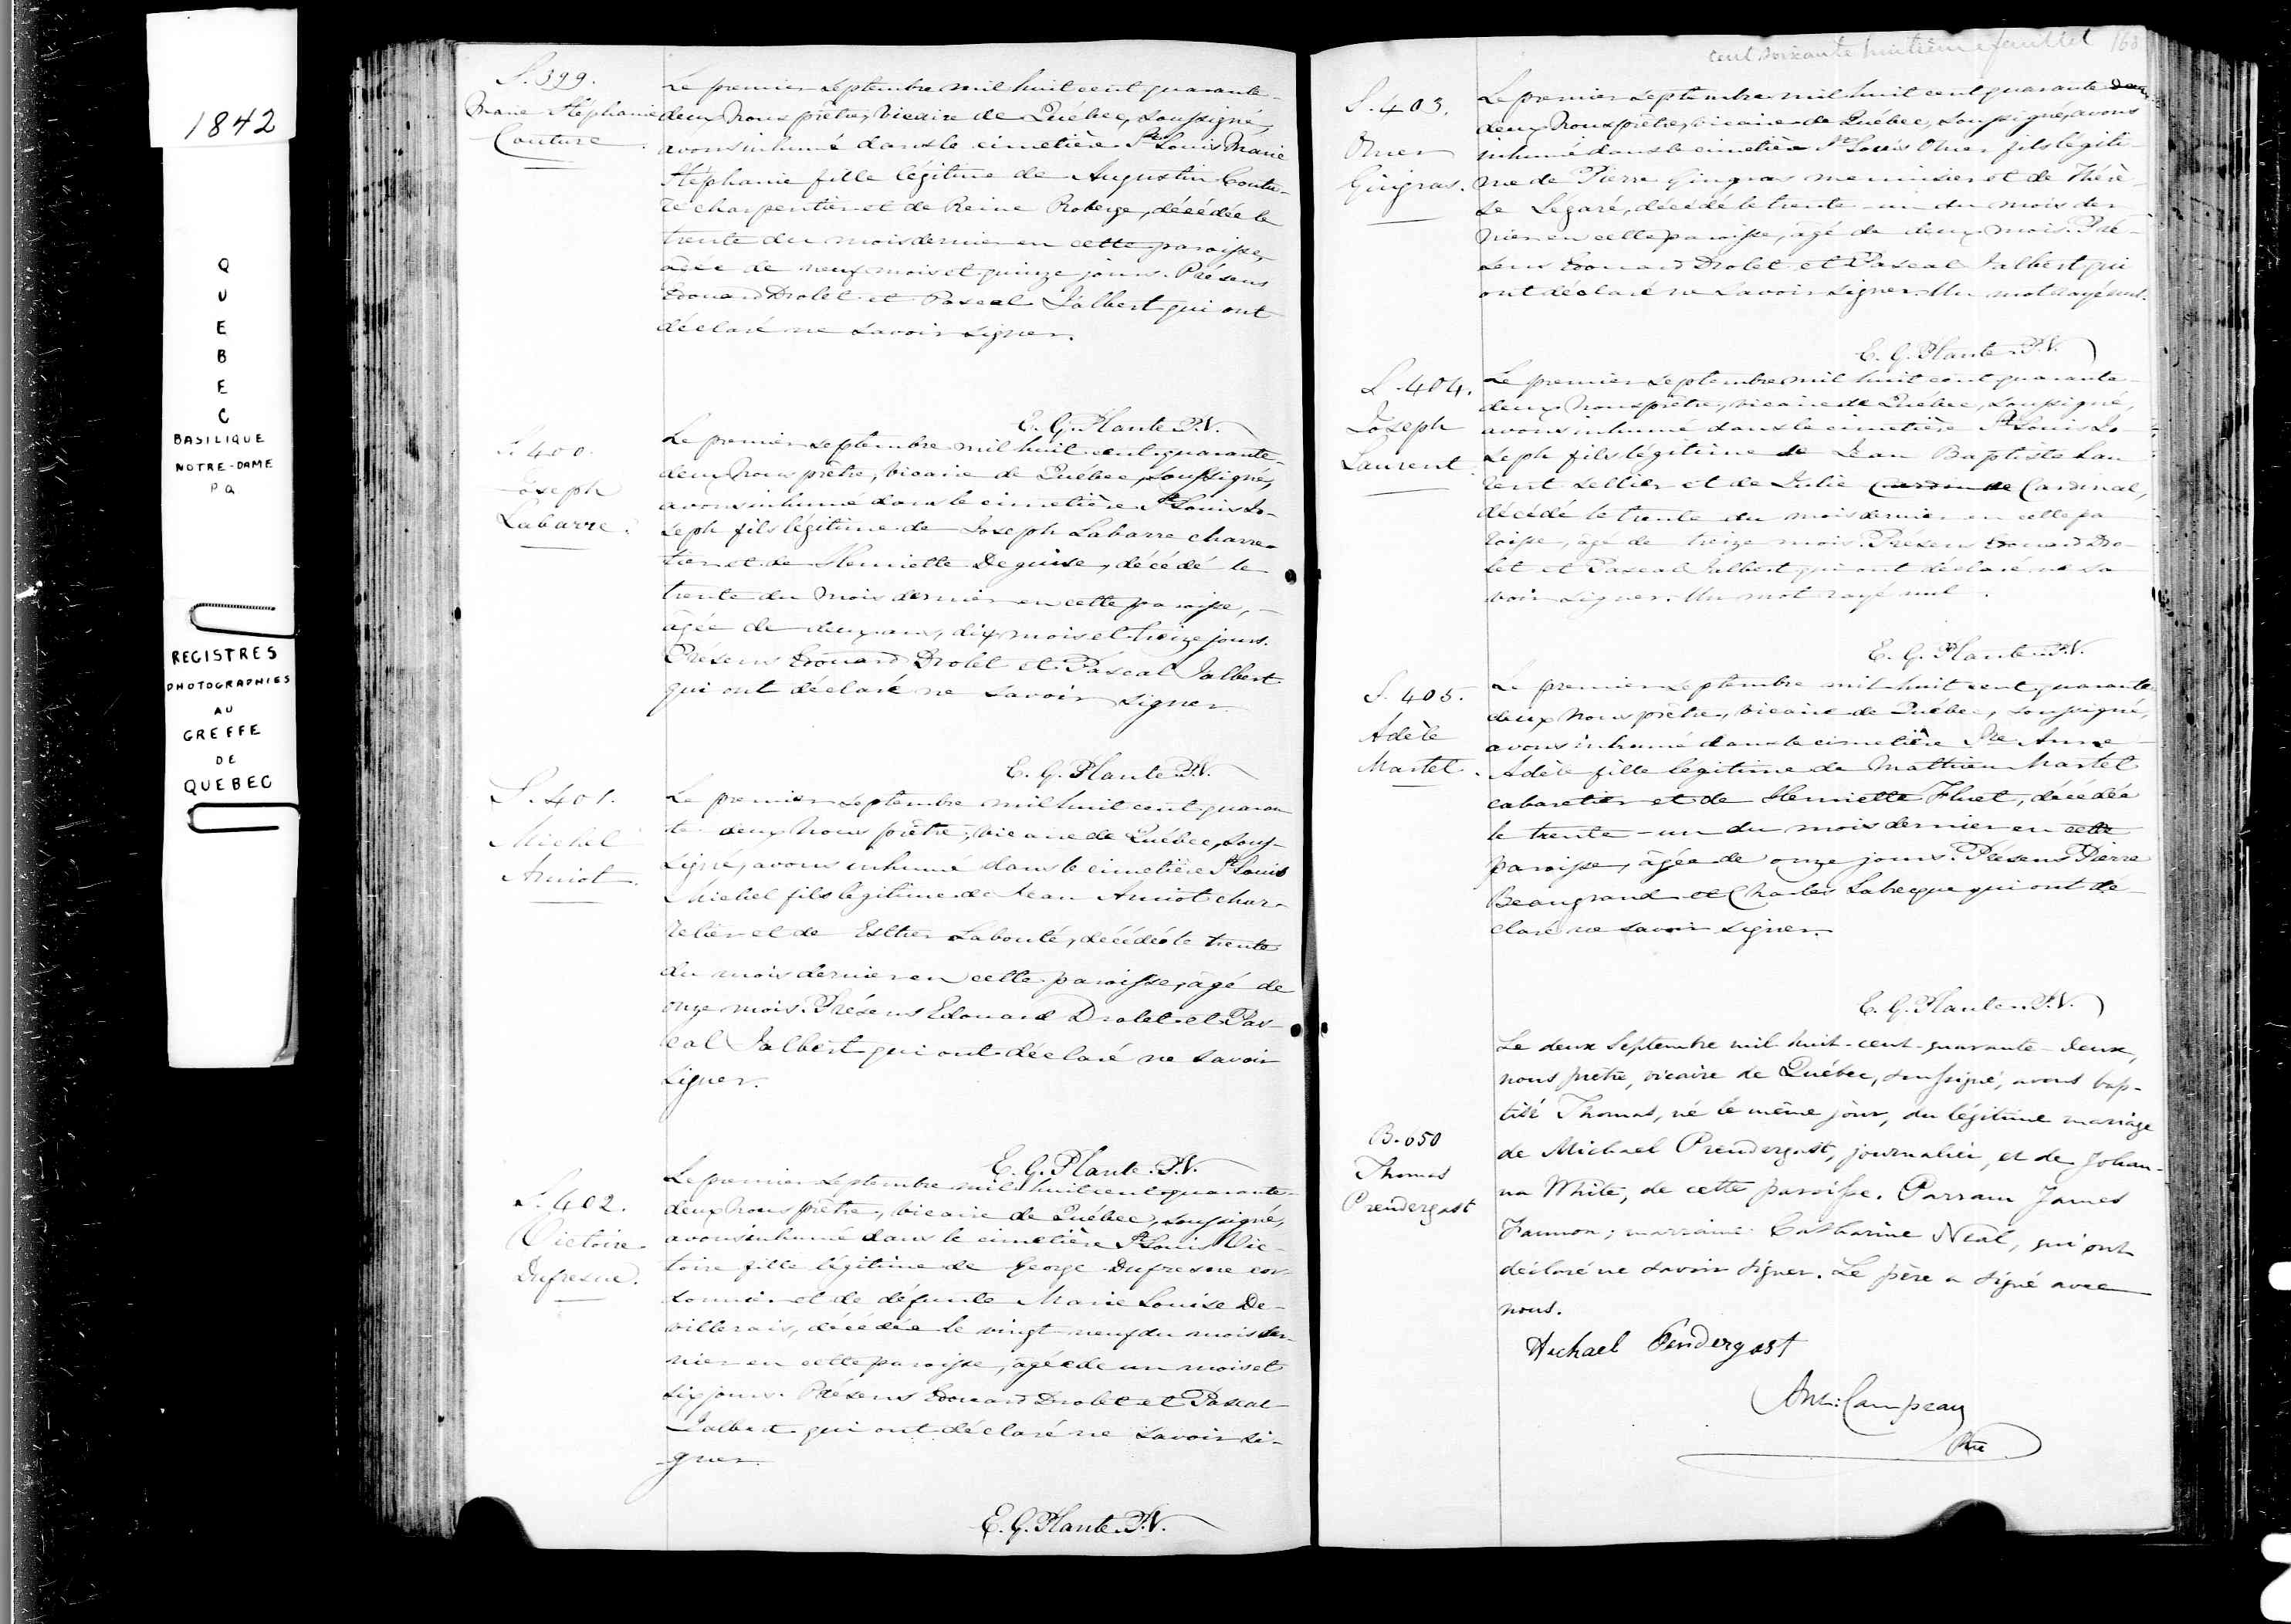 1842
QUEBEC
BASILIQUE
NOTRE-DAME
PQ
REGISTRES
PHOTOGRAPHIES
AU
GREFFE
DE
QUEBEC
S. 399.
Marie Stéphanie
Couture
Le premier septembre mil huit cent quarante-
deux Nous prêtre, vicaire de Québec, soussigné,
avons inhumé dans le cimetière St Louis Marie
Stéphanie fille légitime de Augustin Coutu-
re charpentier et de Reine Roberge, décédée le
trente du mois dernier en cette paroisse,
agée de neuf mois et quinze jours. Présens
Edouard Drolet et Pascal Jalbert qui ont
déclaré ne savoir signer.
E. G. Plante P.V.
S. 400.
Joseph
Labarre.
Le premier septembre mil huit cent quarante-
deux Nous prêtre, vicaire de Québec, soussigné,
avons inhumé dans le cimetière St Louis Jo-
seph fils légitime de Joseph Labarre charre-
tier et de Henriette Deguise, décédé le
trente du mois dernier en cette paroisse,
agée de deux ans, dix mois et treize jours.
Présens Edouard Drolet et Pascal Jalbert
qui ont déclaré ne savoir signer.
E. G. Plante P.V.
S. 401.
Michel
Amiot
Le premier septembre mil huit cent quaran
te deux Nous prêtre, vicaire de Québec, sous-
signé, avons inhumé dans le cimetière St Louis
Michel fils légitime de Jean Amiot char-
retier et de Esther Labouté, décédé le trente
du mois dernier en cette paroisse, agé de
onze mois. Présens Edouard Drolet et Pas-
cal Jalbert qui ont déclaré ne savoir
signer.
E. G. Plante. P.V.
S. 402.
Victoire
Dufresne.
Le premier septembre mil huit cent quarante-
deux Nous prêtre, vicaire de Québec, soussigné,
avons inhumé dans le cimetière St Louis Vic-
toire fille légitime de George Dufresne cor-
donnier et de défunte Marie Louise De-
villerais, décédée le vingt-neuf du mois der-
nier en cette paroisse, agée de un mois et
six jours. Présens Edouard Drolet et Pascal
Jalbert qui ont déclaré ne savoir si-
gner.
E. G. Plante P.V.
cent soixante huitième feuillet 168
S. 403.
Omer
Gingras.
Le premier septembre mil huit cent quarante deux
deux Nous prêtre, vicaire de Québec, soussigné, avons
inhumé dans le cimetière St Louis Omer fils légiti-
me de Pierre Gingras menuisier et de Thérè-
se Legaré, décédé le trente-un du mois der
nier en cette paroisse, agé de deux mois. Pré-
sens Edouard Drolet et Pascal Jalbert qui
ont déclaré ne savoir signer. Un mot rayé nul.
E. G. Plante P.V.
S. 404.
Joseph
Laurent
Le premier septembre mil huit cent quarante
deux Nous prêtre, vicaire de Québec, soussigné,
avons inhumé dans le cimetière St Louis Jo-
seph fils légitime de Jean Baptiste Lau
rent sellier et de Julie Cardinal,
décédé le trente du mois dernier en cette pa
roisse, agé de treize mois. Présens Edouard Dro-
let et Pascal Jalbert qui ont déclaré ne sa
voir signer. Un mot rayé nul.
E. G. Plante P.V.
S. 405.
Adèle
Martel.
Le premier septembre mil huit cent quarante
deux Nous prêtre, vicaire de Québec, soussigné,
avons inhumé dans le cimetière Ste Anne
Adèle fille légitime de Mathieu Martel
cabaretier et de Henriette Huet, décédée
le trente-un du mois dernier en cette
paroisse, agée de onze jours. Présens Pierre
Beaugrand et Charles Labrecque qui ont dé-
claré ne savoir signer.
E. G. Plante P.V.
B. 650
Thomas
Prendergast
Le deux Septembre mil huit-cent-quarante-deux,
nous prêtre, vicaire de Québec, soussigné, avons bap-
tisé Thomas, né le même jour, du légitime mariage
de Michael Prendergast, journalier, et de Johan-
na White, de cette paroisse. Parrain James
Fannon; marraine Catharine Neal, qui ont
déclaré ne savoir signer. Le père a signé avec
nous.
Michael Pendergast
Ant: Campeau
Ptre